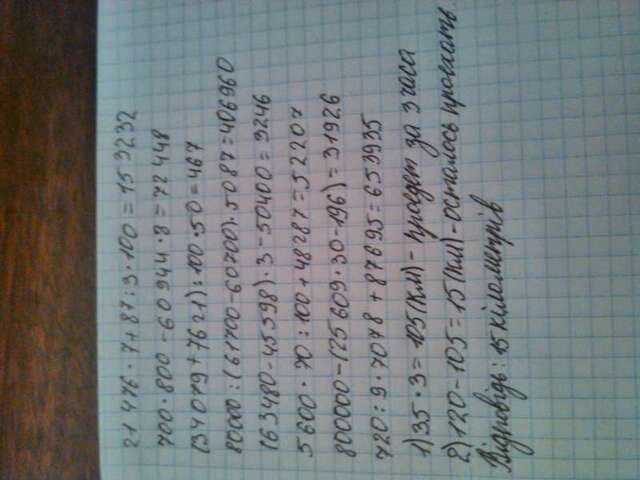 21 476 · 7 + 87 : 3 · 100 = 153232
700 · 800 - 60944 · 8 = 72448
(34079 + 7621) : 100 + 50 = 467
80000 : (61700 - 60700) · 5087 = 406960
(63480 - 45598) · 3 - 50400 = 3246
5600 · 70 : 100 + 48287 = 52207
800000 - (25609 · 30 - 196) = 31926
720 : 9 · 7078 + 87695 = 653935
1) 35 · 3 = 105 (км) - проедет за 3 часа
2) 120 - 105 = 15 (км) - осталось проехать.
Відповідь: 15 кілометрів